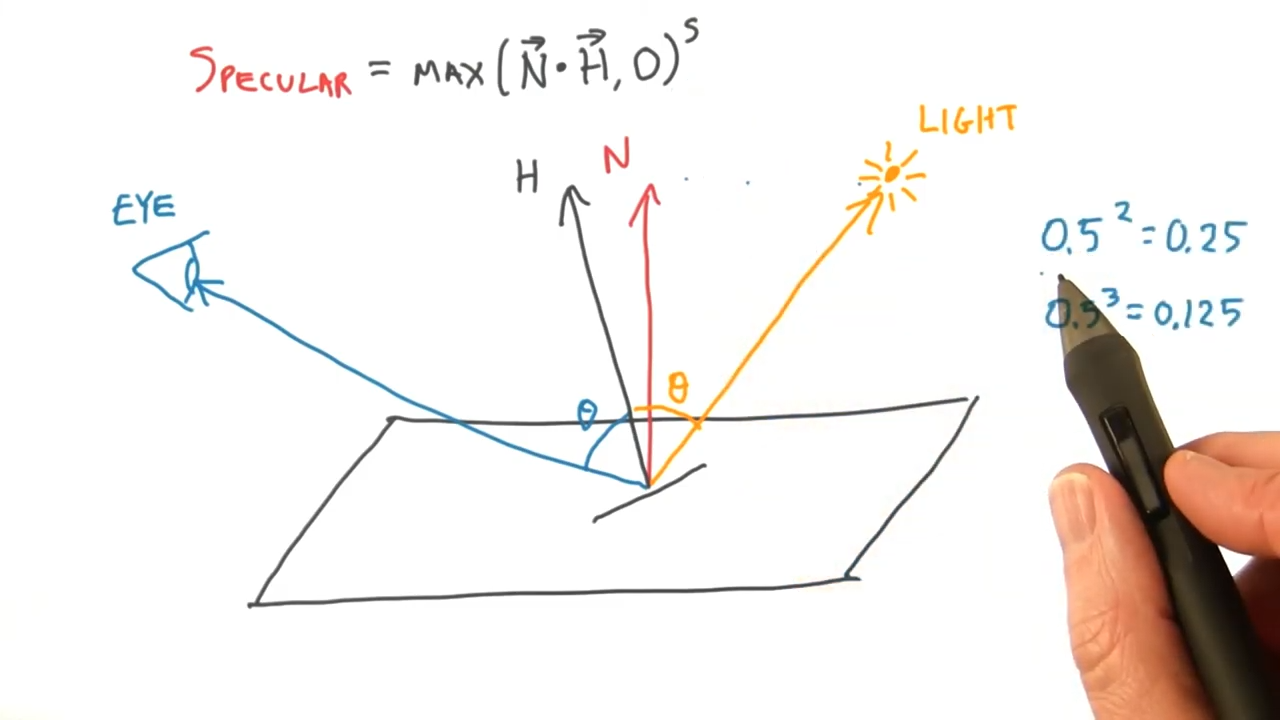 SPECULAR = MAX(N⃗·H⃗, 0)ˢ
LIGHT
H
N
EYE
0.5² = 0.25
0.5³ = 0.125
θ
θ